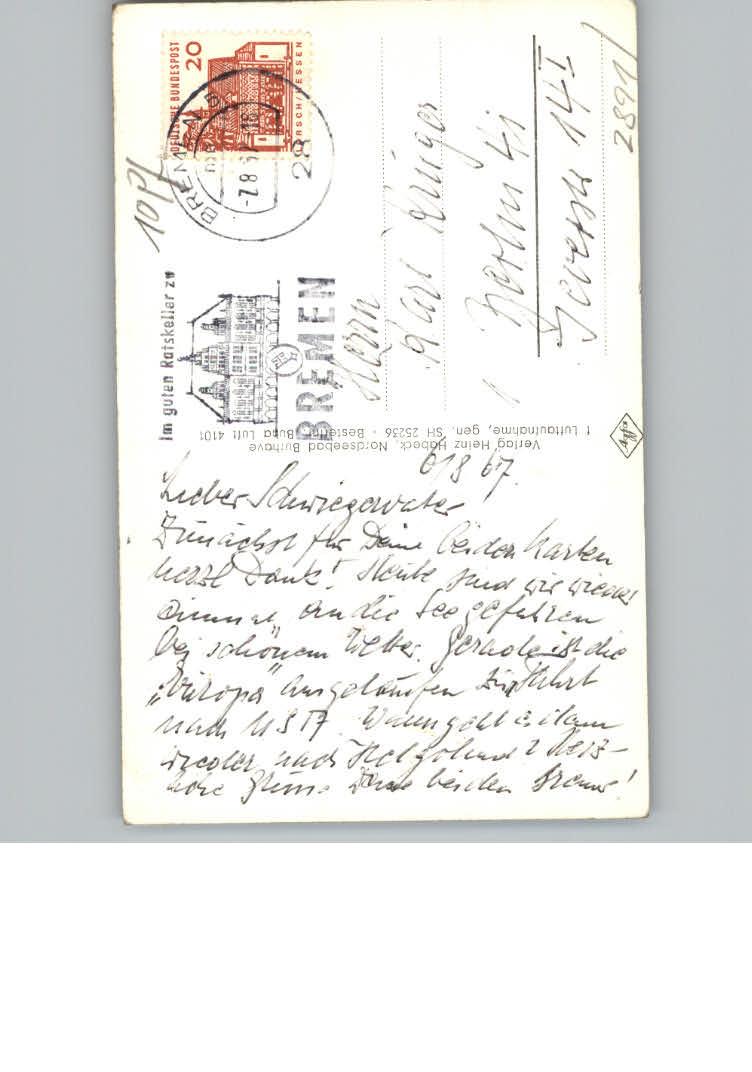 DEUTSCHE BUNDESPOST
20
LORSCH/HESSEN
BREMEN 5
-7.8.67-18
28
10 Pf
Im guten Ratskeller zu
BREMEN
Herrn
Karl Krüger
Berlin 41
14 I
2891/
Verlag Heinz Habeck, Nordseebad Burhave
f. Luftaufnahme, gen. SH 25236 - Bestellnr. Buna Luft 4101
Agfa
6/8 67.
Lieber Schwiegervater
Zunächst für Deine beiden Karten
herzl Dank! Heute sind wir wieder
einmal an die See gefahren
bei schönem Wetter. Gerade ist die
„Europa" ausgelaufen zur Fahrt
nach USA. Wann geht es dann
wieder nach Helgoland? Herz-
liche Grüsse Deine beiden Bremer!